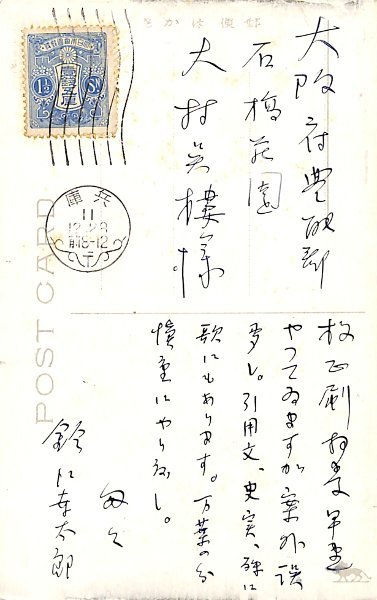 きかは便郵
大阪府豊能郡
石橋荘園
大村呉樓様
大日本帝國郵便
壹錢五厘
1½ Sn
兵庫
11
12.28
前8-12
POST CARD
校正刷
やつてゐますが案外誤
多し。引用文、史実、殊に
歌にもあります。万葉の分
慎重にやり度し。
鈴江幸太郎